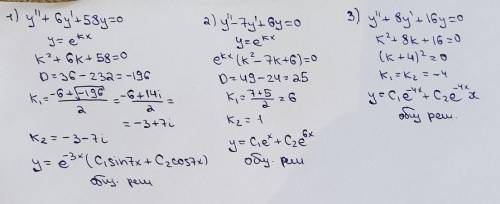 1) y''+6y'+58y=0
y=e^kx
k²+6k+58=0
D=36-232=-196
k₁=(-6+√-196)/2=(-6+14i)/2=
=-3+7i
k₂=-3-7i
y=e^-3x(C₁sin7x+C₂cos7x)
общ. реш.
2) y''-7y'+6y=0
y=e^kx
e^kx(k²-7k+6)=0
D=49-24=25
k₁=(7+5)/2=6
k₂=1
y=C₁e^x+C₂e^6x
общ. реш.
3) y''+8y'+16y=0
k²+8k+16=0
(k+4)²=0
k₁=k₂=-4
y=C₁e^-4x+C₂e^-4x x
общ. реш.